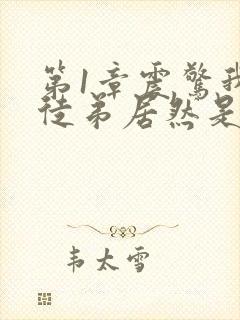 第1章震驚我
徒弟居然是
韦太雪